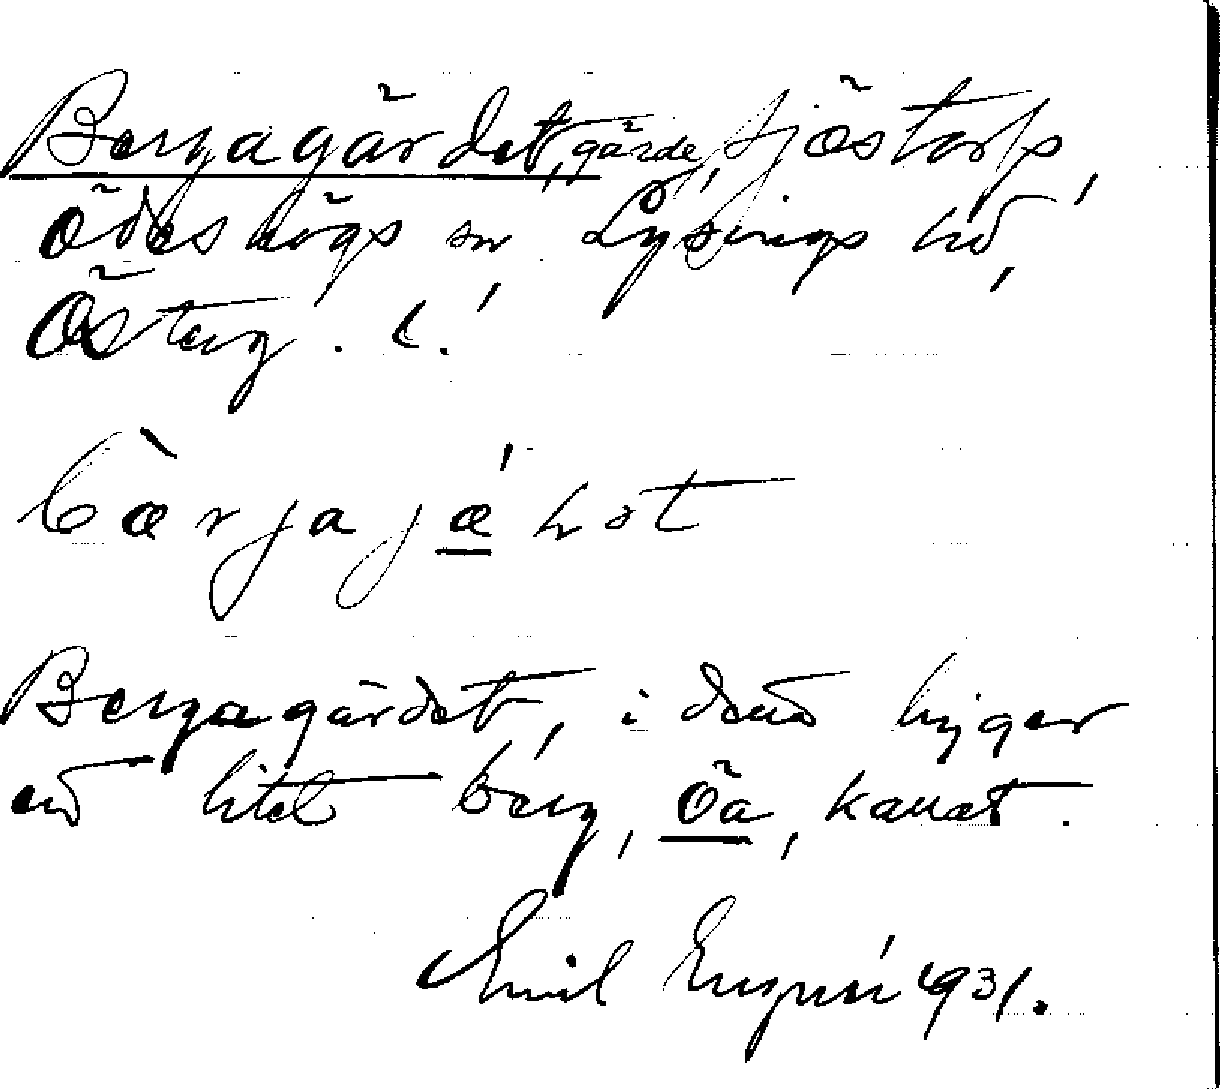 Bergagärdet, gärde, Sjöstorp,
Ödeshögs sn Lysings hd,
Österg. l.
bæ̀rjajǽɽət
Bergagärdet, i det ligger
ett litet berg, Öa, kallat.
Emil Linnér 1931.